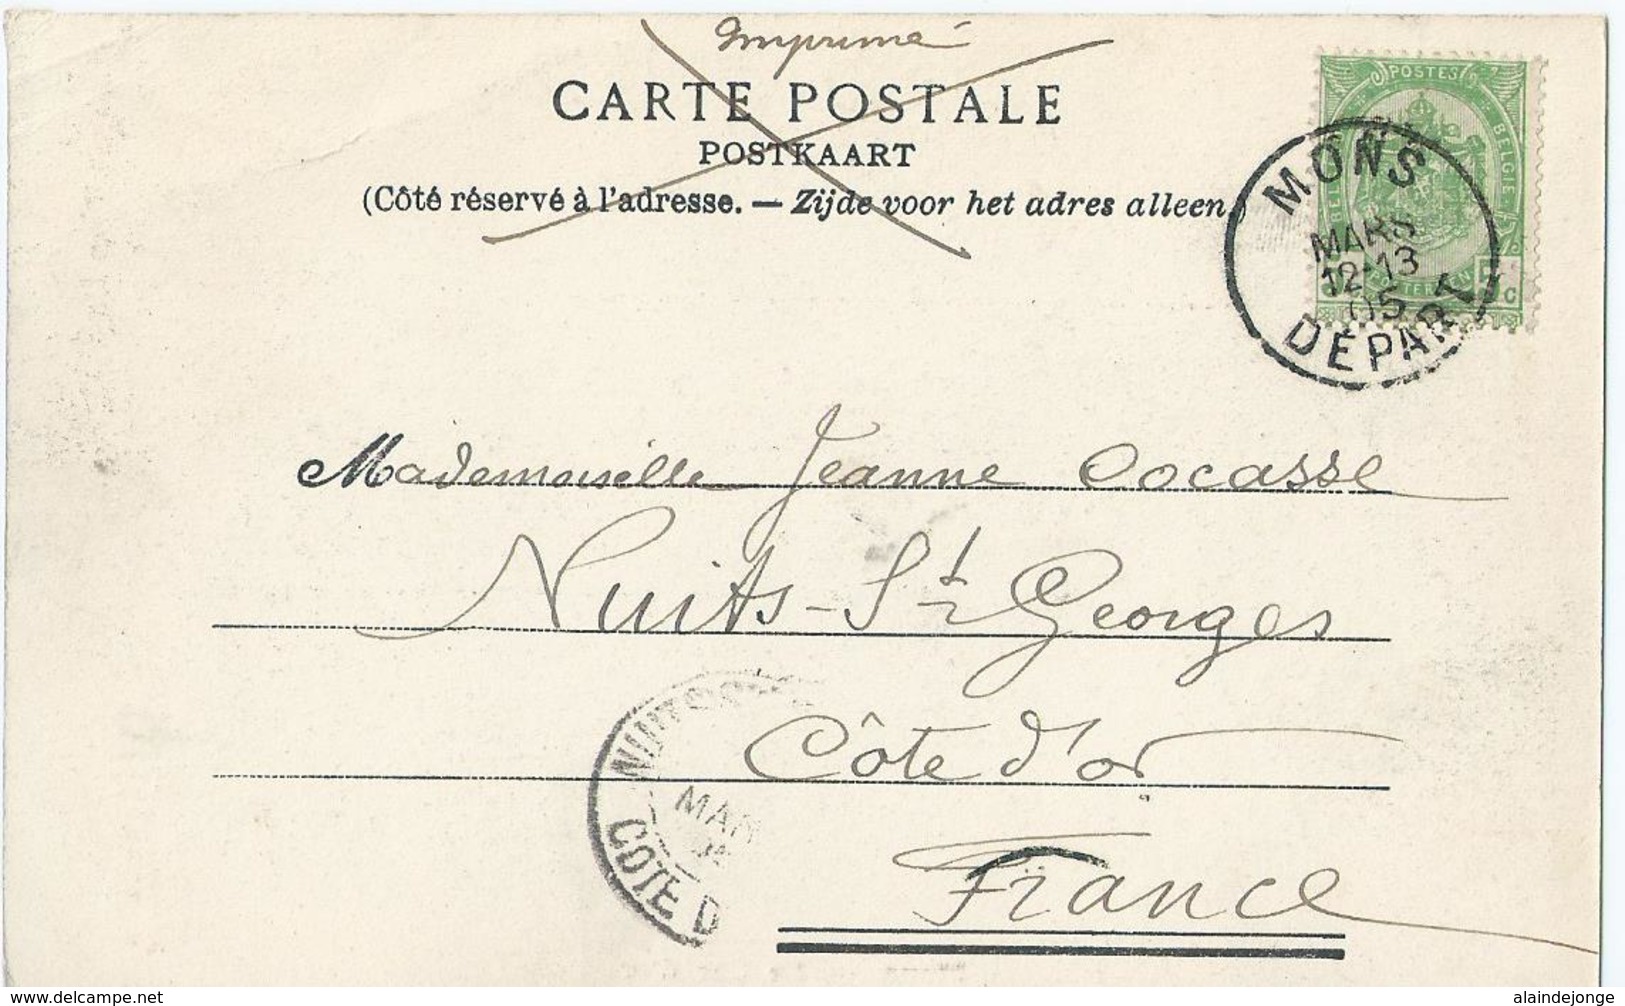 Imprimé
CARTE POSTALE
POSTKAART
(Côté réservé à l'adresse. — Zijde voor het adres alleen.)
POSTES
BELGIE
MONS
MARS
12-13
05
DÉPART
Mademoiselle Jeanne Cocasse
Nuits-St Georges
Côte d'or
France
NUITS
MAR
COTE D
delcampe.net
alaindejonge